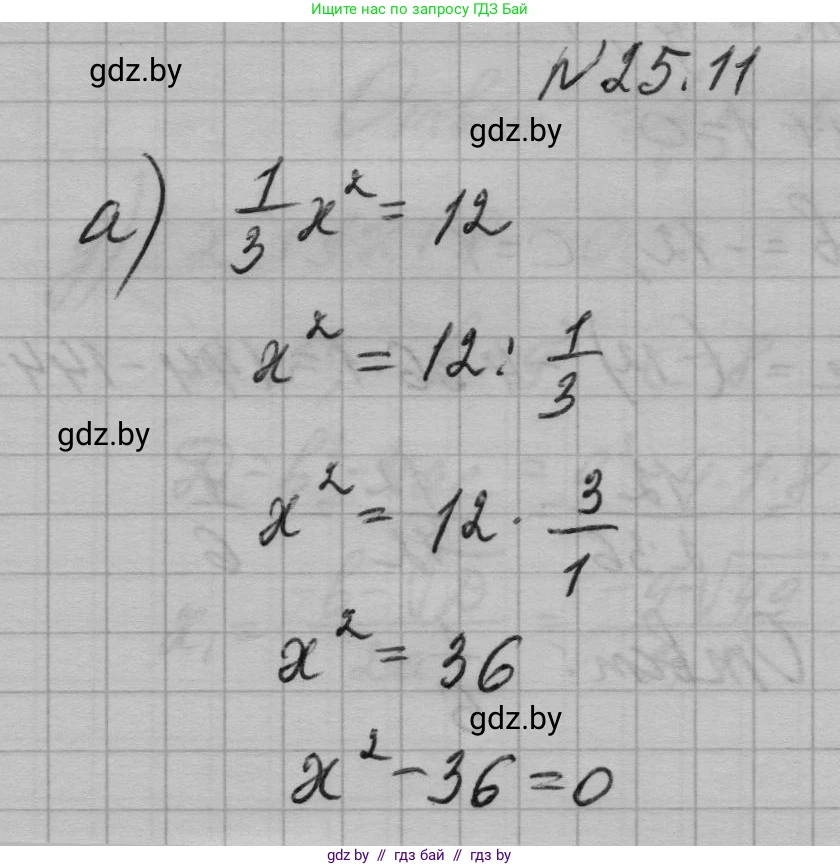 Ищите нас по запросу ГДЗ Бай
gdz.by
№25.11
gdz.by
а) 1/3 x² = 12
x² = 12 : 1/3
gdz.by
x² = 12 · 3/1
x² = 36
gdz.by
x² - 36 = 0
gdz by // гдз бай // gdz by